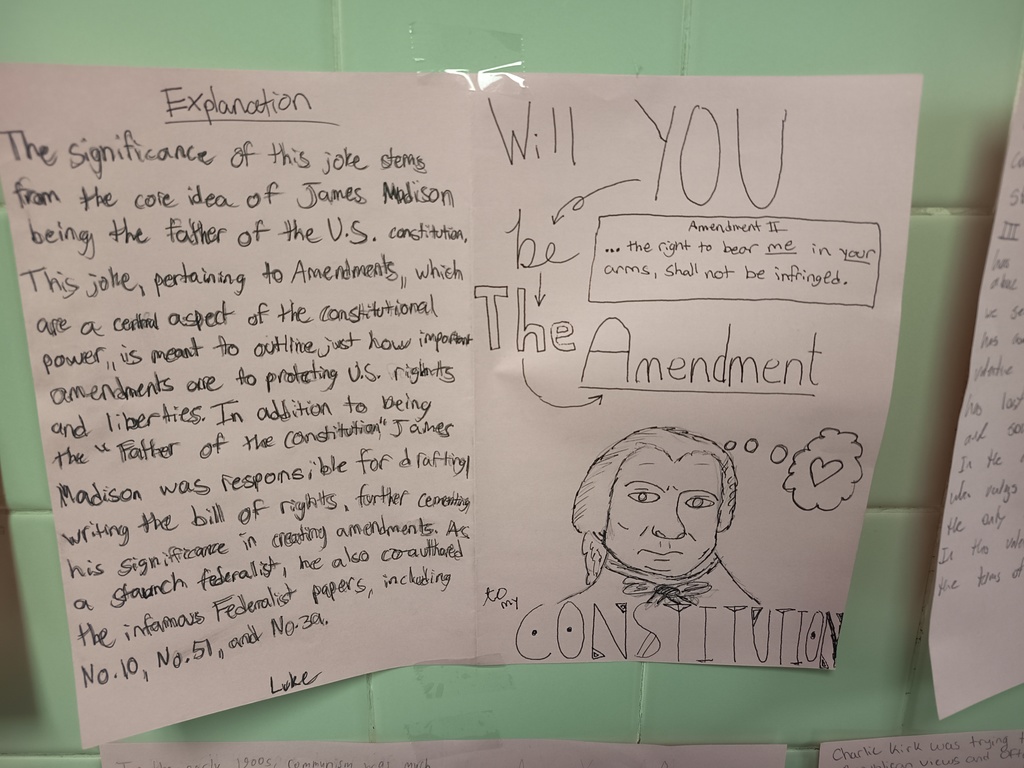 Explanation
The significance of this joke stems
from the core idea of James Madison
being the father of the U.S. constitution.
This joke, pertaining to Amendments, which
are a central aspect of the constitutional
power, is meant to outline just how important
amendments are to protecting U.S. rights
and liberties. In addition to being
the "Father of the constitution" James
Madison was responsible for drafting/
writing the bill of rights, further cementing
his significance in creating amendments. As
a staunch federalist, he also co-authored
the infamous Federalist papers, including
No.10, No.51, and No.39.
Luke
Will YOU
be
Amendment II
... the right to bear me in your
arms, shall not be infringed.
The
Amendment
to my
CONSTITUTION
III
has
has
valentine
has last
In the
when
the only
In this
the terms of
1900s, communism was much
Charlie Kirk was trying
Republican views and